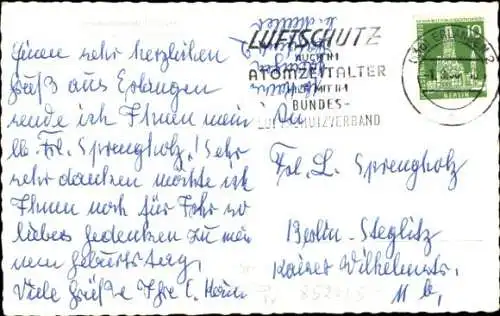 Einen sehr herzlichen
Gruß aus Erlangen
sende ich Ihnen mein
lb. Frl. Sprengholz! Sehr
sehr danken möchte ich
Ihnen noch für Ihr so
liebes Gedenken zu mei
nem Geburtstag,
Viele Grüße Ihre E.
LUFTSCHUTZ
AUCH IM
ATOMZEITALTER
MIT IM
BUNDES-
LUFTSCHUTZVERBAND
ERLANGEN 2
10
BERLIN
Frl. L. Sprengholz
Berlin-Steglitz
Kaiser Wilhelmstr.